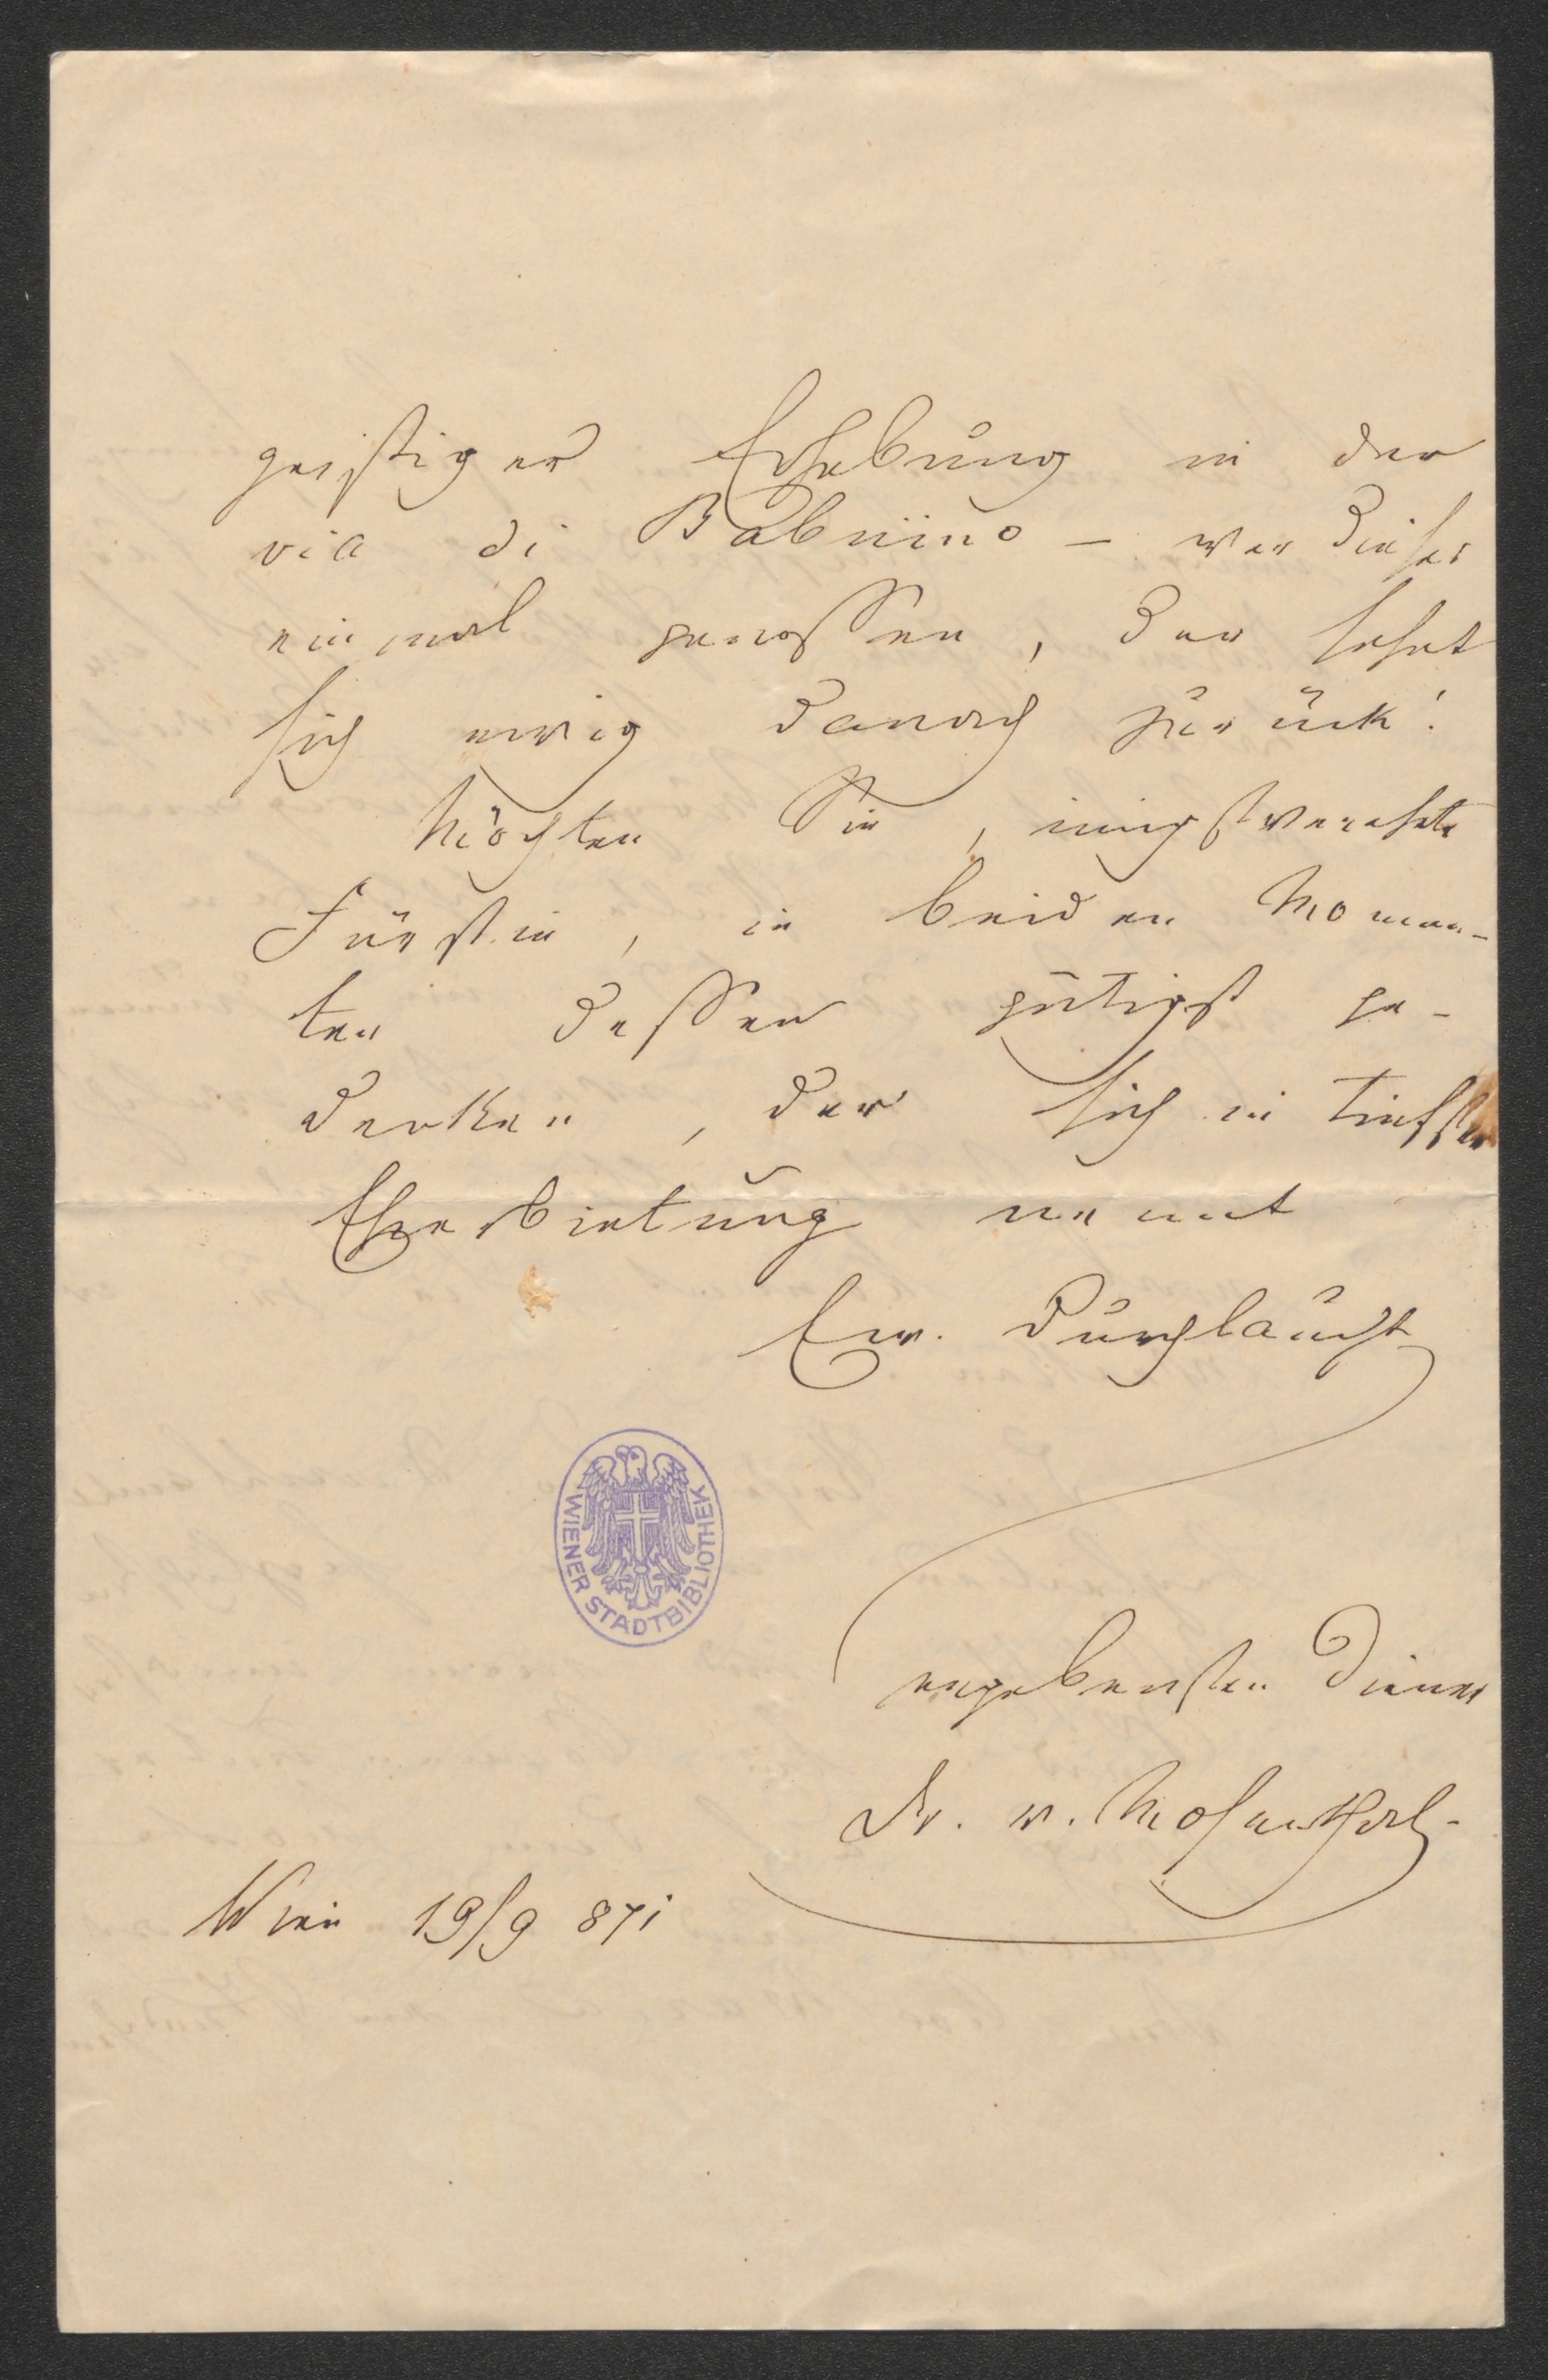 geistiger Erhebung in der
via di Babuino – wer dieses
einmal genossen, der sehnt
sich ewig danach zurück!
Möchten Sie, innigstverehrte
Fürstin, in beiden Momen-
ten dessen gütigst ge-
denken, der sich in tiefster
Ehrerbietung nennt
Ew. Durchlaucht
ergebensten Diener
Dr. v. Mosenthal
Wien 19/9 871
WIENER STADTBIBLIOTHEK